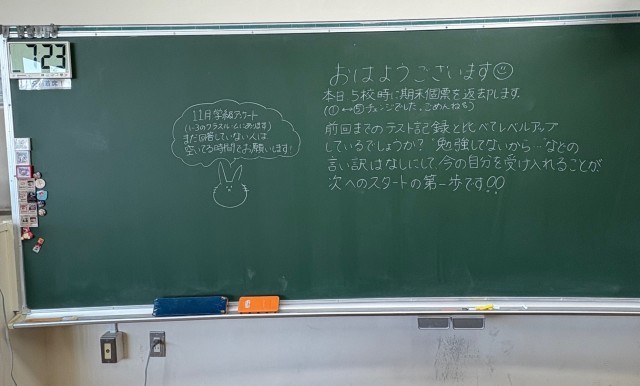 7:23
11月学級アンケート
(1-3のクラスルームにあります)
まだ回答していない人は
空いてる時間でお願いします!
おはようございます
本日5校時に期末個票を返却します。
(①↔⑤チェンジでした。ごめんね💦)
前回までのテスト記録と比べてレベルアップ
しているでしょうか?"勉強してないから…"などの
言い訳はなしにして、今の自分を受け入れることが、
次へのスタートの第一歩です!!